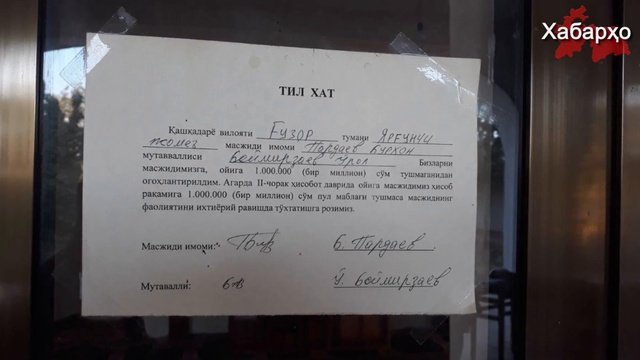 Хабарҳо
ТИЛ ХАТ
Қашқадарё вилояти Ғузор тумани Ярғунчи
жомеъ масжиди имоми Пардаев Бурхон
мутаваллиси Боймирзаев Ўрол Бизларни
масжидимизга, ойига 1.000.000 (бир миллион) сўм тушмаганидан
огоҳлантирилдим. Агарда II-чорак ҳисобот даврида ойига масжидимиз ҳисоб
рақамига 1.000.000 (бир миллион) сўм пул маблағи тушмаса масжиднинг
фаолиятини ихтиёрий равишда тўхтатишга розимиз.
Масжиди имоми: Б. Пардаев.
Мутавалли: Ў. Боймирзаев